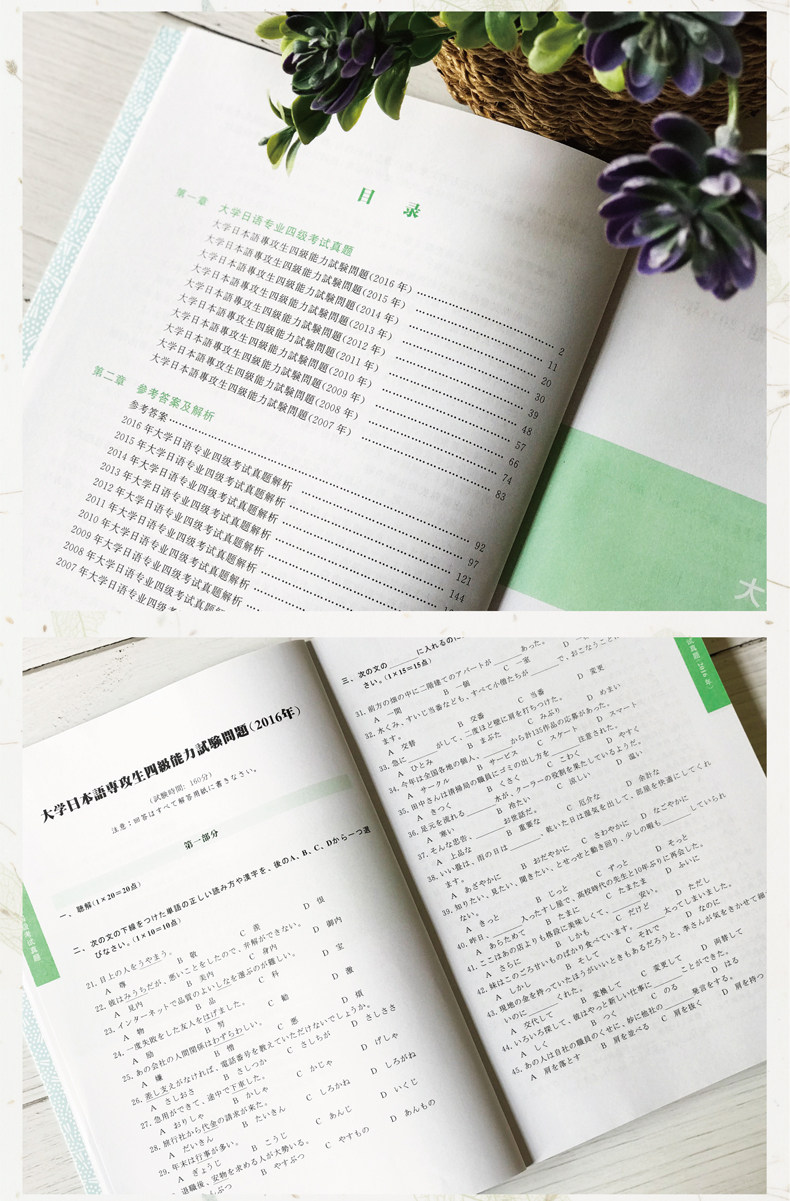 目 录
第一章 大学日语专业四级考试真题
大学日本語専攻生四級能力試験問題(2016 年) 2
大学日本語専攻生四級能力試験問題(2015 年) 11
大学日本語専攻生四級能力試験問題(2014 年) 20
大学日本語専攻生四級能力試験問題(2013 年) 30
大学日本語専攻生四級能力試験問題(2012 年) 39
大学日本語専攻生四級能力試験問題(2011 年) 48
大学日本語専攻生四級能力試験問題(2010 年) 57
大学日本語専攻生四級能力試験問題(2009 年) 66
大学日本語専攻生四級能力試験問題(2008 年) 74
大学日本語専攻生四級能力試験問題(2007 年) 83
第二章 参考答案及解析
参考答案 92
2016 年大学日语专业四级考试真题解析 97
2015 年大学日语专业四级考试真题解析 121
2014 年大学日语专业四级考试真题解析 144
2013 年大学日语专业四级考试真题解析
2012 年大学日语专业四级考试真题解析
2011 年大学日语专业四级考试真题解析
2010 年大学日语专业四级考试真题解析
2009 年大学日语专业四级考试真题解析
2008 年大学日语专业四级考试真题
2007 年大学日语专业四级考试
大
大学日本語専攻生四級能力試験問題(2016年)
(試験時間: 160分)
注意:回答はすべて解答用紙に書きなさい。
第一部分
一、聴解(1×20=20点)
二、次の文の下線をつけた単語の正しい読み方や漢字を、後のA、B、C、Dから一つ選
びなさい。(1×10=10点)
21. 目上の人をうやまう。
A 尊 B 敬 C 羨 D 偲
22. 彼はみうちだが、悪いことをしたので、弁解ができない。
A 見内 B 実内 C 身内 D 御内
23. インターネットで品質のよいしなを選ぶのが難しい。
A 物 B 品 C 科 D 宝
24. 一度失敗をした友人をはげました。
A 励 B 努 C 勧 D 激
25. あの会社の人間関係はわずらわしい。
A 嫌 B 憎 C 悪 D 煩
26. 差し支えがなければ、電話番号を教えていただけないでしょうか。
A さしおさ B さしつか C さしちが D さしささ
27. 急用ができて、途中で下車した。
A おりしゃ B かしゃ C かじゃ D げしゃ
28. 旅行社から代金の請求が来た。
A だいきん B たいきん C しろかね D しろがね
29. 年末は行事が多い。
A ぎょうじ B こうじ C あんじ D いくじ
退職後、安物を求める人が大勢いる。
しぶつ B やすぶつ C やすもの D あんもの
三、次の文の＿＿＿に入れるのに
さい。(1×15=15点)
31. 前方の畑の中に二階建てのアパートが＿＿＿あった。
A 一間 B 一個 C 一室 D 一
32. 水くみ、すいじ当番なども、すべて小僧たちが＿＿＿で、おこなうことに
ます。
A 交替 B 交番 C 当番 D 変更
33. 急に＿＿＿がして、二度ほど壁に肩を打ちつけた。
A ひとみ B まぶた C みぶり D めまい
34. 今年は全国各地の個人、＿＿＿から計135作品の応募があった。
A サークル B サービス C スケート D スマート
35. 田中さんは清掃局の職員にゴミの出し方を＿＿＿注意された。
A きつく B くさく C こわく D やすく
36. 足元を流れる＿＿＿水が、クーラーの役割を果たしているようだ。
A 寒い B 冷たい C 涼しい D 温い
37. そんな忠告、＿＿＿お世話だ。
A 上品な B 重要な C 厄介な D 余計な
38. いい畳は、雨の日は＿＿＿、乾いた日は湿気を出して、部屋を快適にしてくれ
ます。
A あざやかに B おだやかに C さわやかに D なごやかに
39. 知りたい、見たい、聞きたい、とせっせと動き回り、少しの暇も＿＿＿していられ
ない。
A きっと B じっと C ずっと D そっと
40. 昨日、＿＿＿入ったすし屋で、高校時代の先生と10年ぶりに再会した。
A あらためて B たまに C たまたま D ふいに
41. ここはあの店よりも格段に美味しくて、＿＿＿安い。
A さらに B しかも C だけど D ただし
42. 妹はこのごろ甘いものばかり食べています。＿＿＿太ってしまいました。
A しかし B そして C それで D なのに
43. 現地の金を持っていたほうがいいときもあるだろうと、李さんが気をきかせて細か
いのに＿＿＿くれた。
A 交代して B 変換して C 変更して D 両替して
44. いろいろ探して、彼はやっと新しい仕事に＿＿＿ことができた。
A しく B つく C のる D はる
45. あの人は自社の職員のくせに、妙に他社の＿＿＿発言をする。
A 肩を落とす B 肩を並べる C 肩を抜く D 肩を持つ